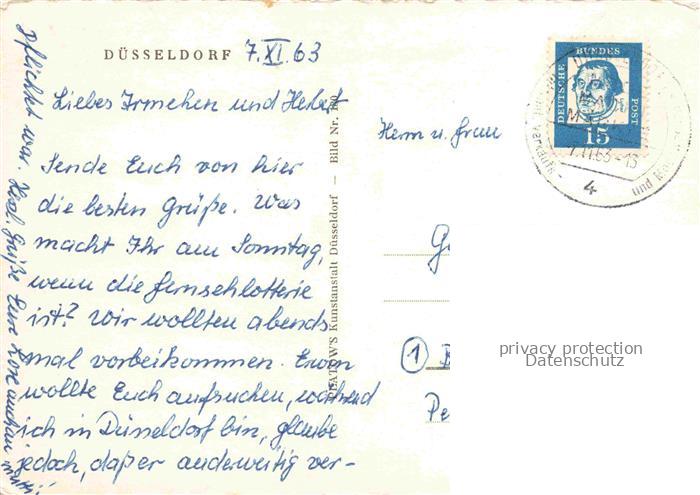 DÜSSELDORF 7.XI.63
Liebes Irmchen und Hebert
Sende Euch von hier
die besten Grüße. Was
macht Ihr am Sonntag,
wenn die Fernsehlotterie
ist? Wir wollten abends
mal vorbeikommen. Erwin
wollte Euch aufsuchen, während
ich in Düsseldorf bin, glaube
jedoch, daß er anderweitig ver-
pflichtet war. Herzl. Grüße Eure
KUNSTANSTALT Düsseldorf — Bild Nr.
Herrn u. Frau
DEUTSCHE BUNDES POST
15
7.11.63-13
4
und
1
privacy protection
Datenschutz